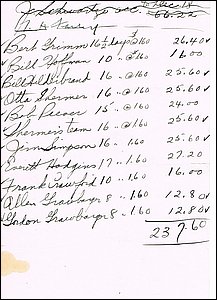 to Dec. 15
66.22
Bert Grimm 16½ days @ 1.60 26.40 v
v Bill Hoffman 10 " @ 1.60 16.00
Bill Hillebrand 16 - @ 1.60 25.60 v
Otto Shermer 16 - @ 1.60 25.60 v
Bob 15 " @ 1.60 24.00
Shermer's team 16 - @ 1.60 25.60 v
v Jim Simpson 16 - 1.60 25.60 v
Everitt Hodgins 17 - 1.60 27.20
Frank Crawford 10 - 1.60 16.00
Allen 8 - 1.60 12.80 v
v Gordon 8 - 1.60 12.80 v
237.60